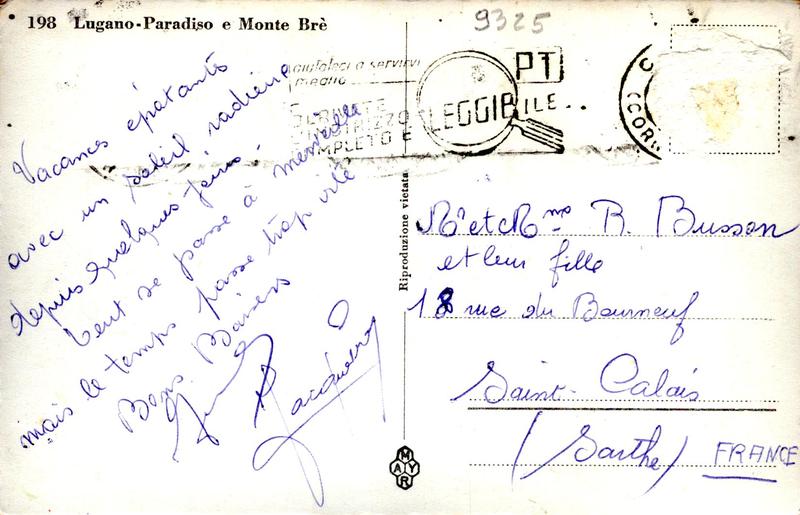 198 Lugano-Paradiso e Monte Brè
9325
aiutateci a servirvi
meglio
PT
LEGGIBILE..
COMPLETO E
Vacances épatantes
avec un soleil radieux
depuis quelques jours.
tout se passe à merveille
mais le temps passe trop vite
Bons Baisers
Riproduzione vietata
Mr et Mme R. Busson
et leur fille
18 rue du Bourneuf
Saint-Calais
(Sarthe) FRANCE
MAYR